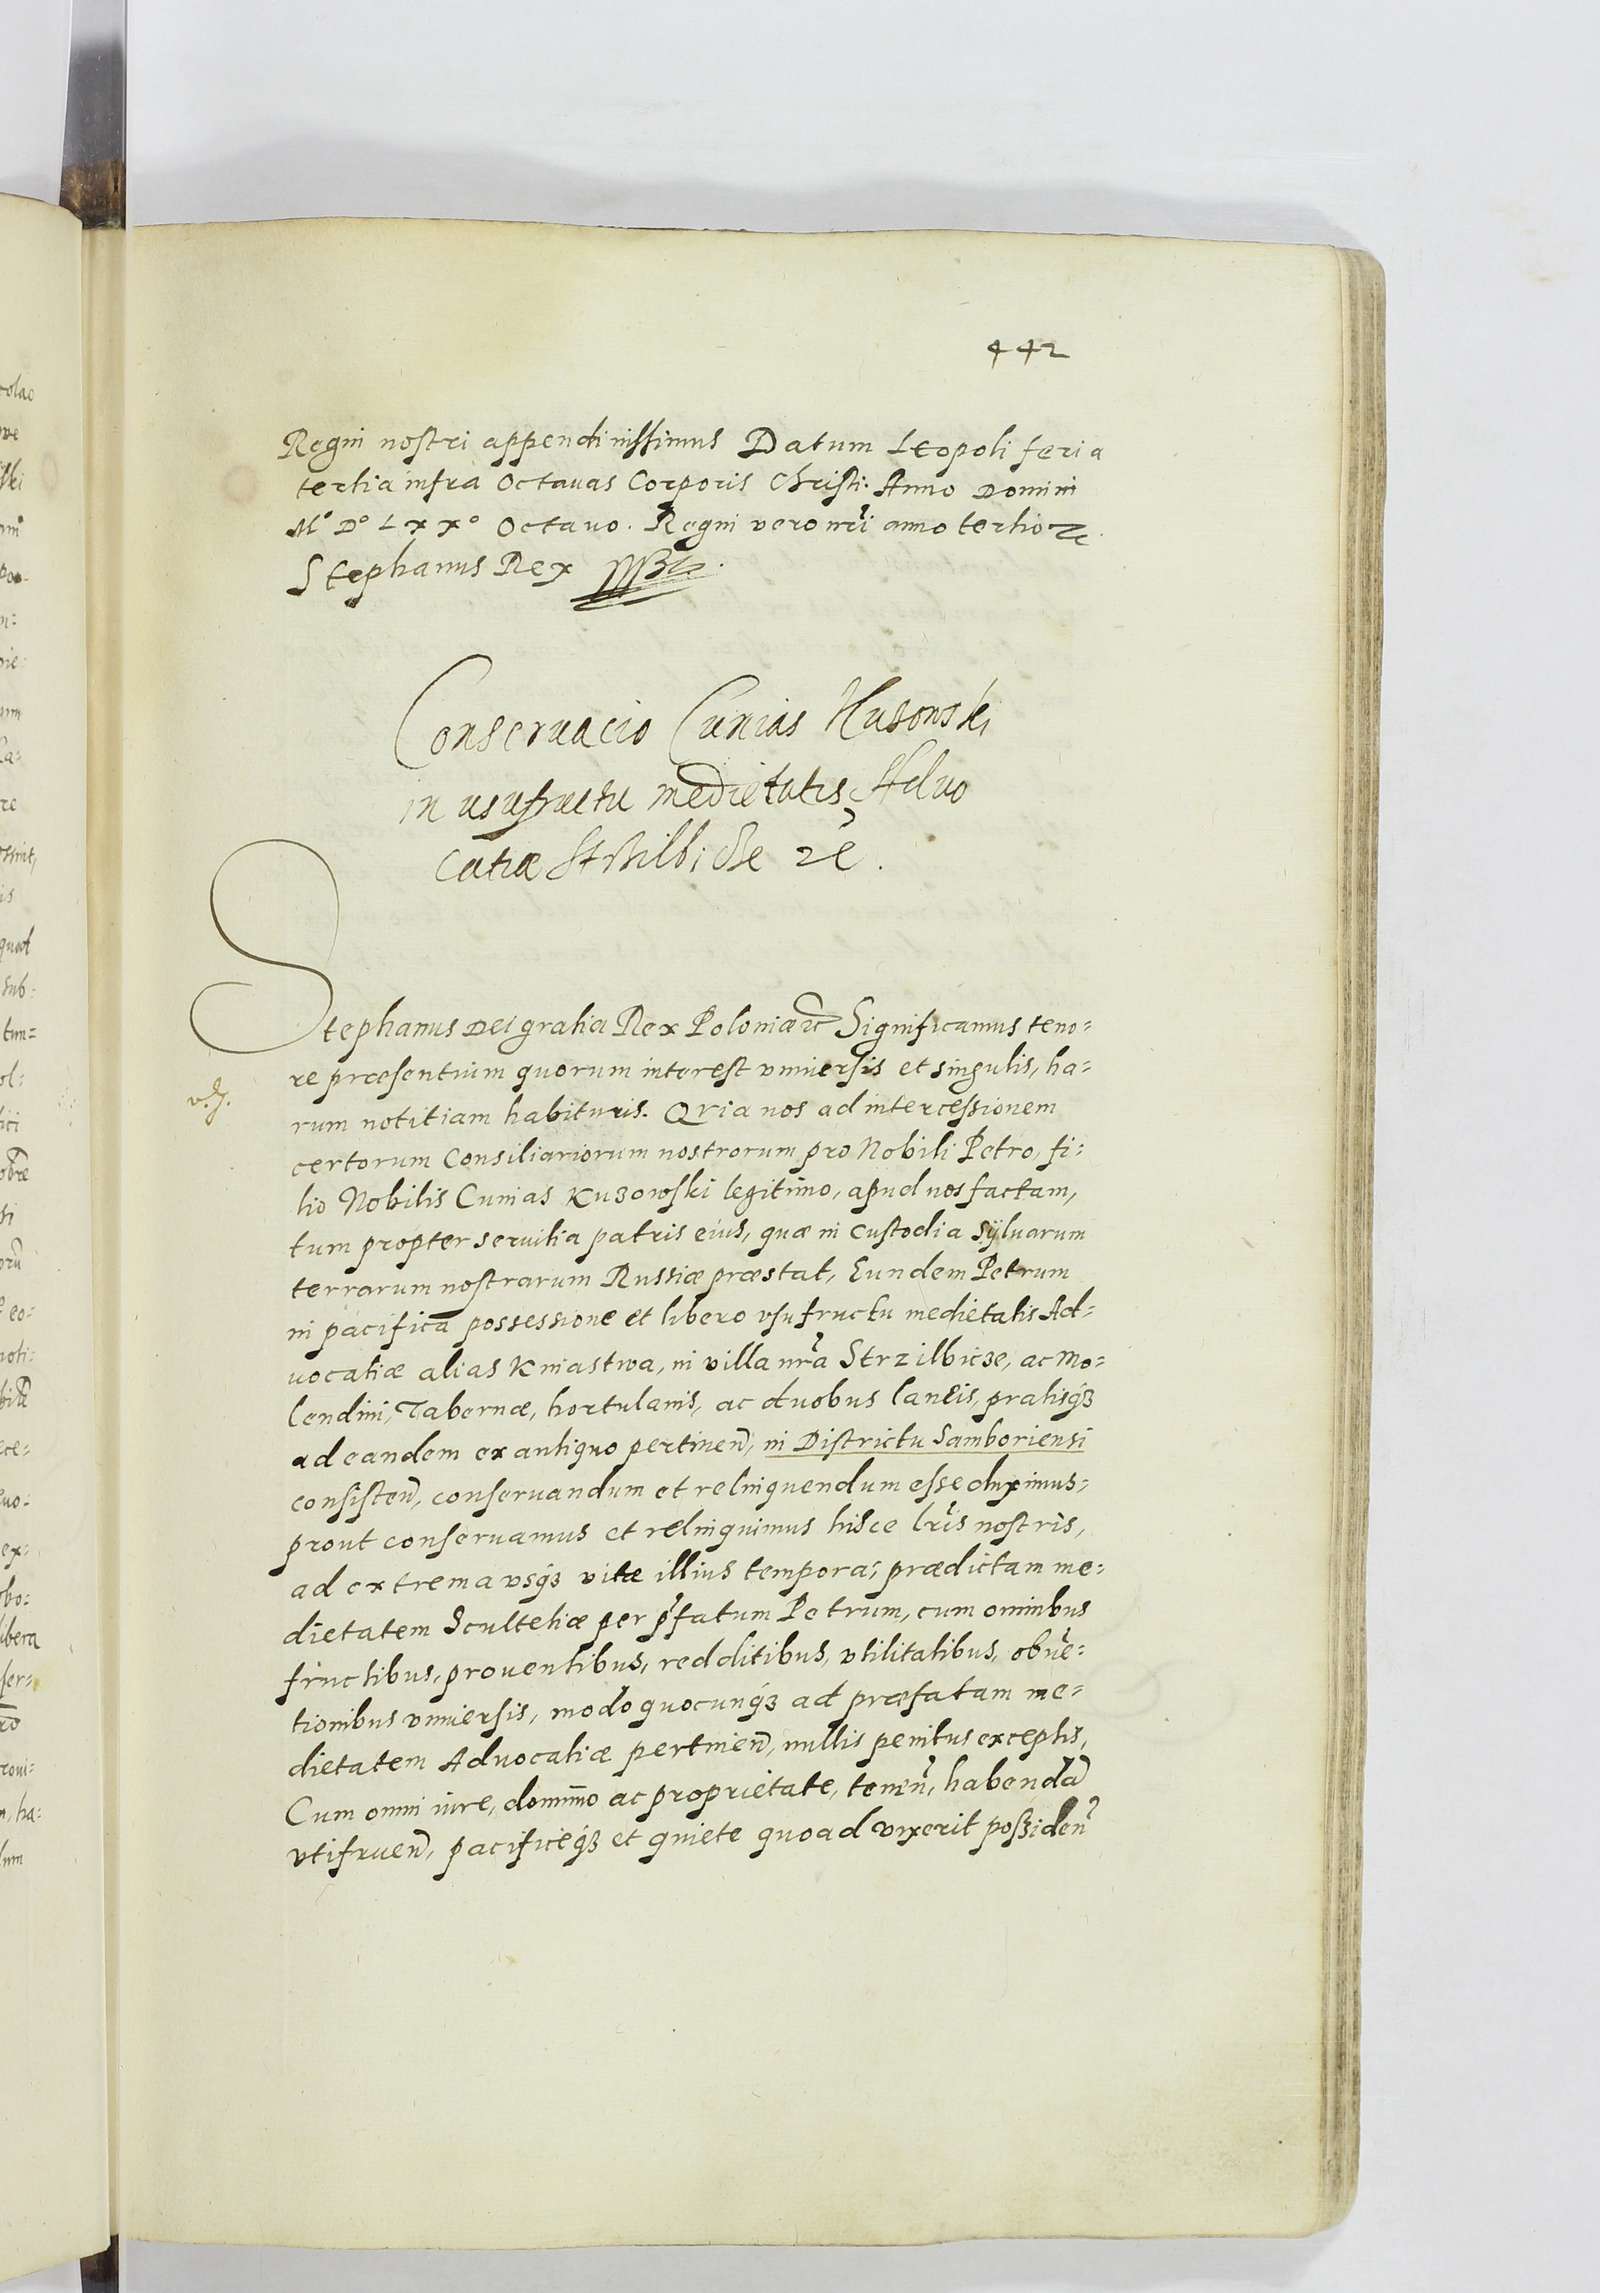 442
Regni nostri appendi iussimus Datum Leopoli feria
tertia infra Octauas Corporis Christi. Anno Domini
M° D° Lxx° Octauo. Regni vero nr̃i anno tertio
Stephanus Rex
Conseruacio Cunias Kusowski
in usufructu medietatis Aduo
catiæ Strzilbicze
Stephanus Dei gratia Rex Poloniæ &c Significamus teno=
re præsentium quorum interest vniuersis et singulis, ha=
rum notitiam habituris. Qvia nos ad intercessionem
certorum Consiliariorum nostrorum pro Nobili Petro, fi=
lio Nobilis Cunias Kuzowski legitimo, apud nos factam,
tum propter seruitia patris eius, quæ in custodia sÿluarum
terrarum nostrarum Russiæ præstat, Eundem Petrum
in pacifica possessione et libero vsufructu medietatis Ad=
uocatiæ alias Kniastwa, in villa nr̃a Strzilbicze, ac Mo=
lendini, Tabernæ, hortulanis, ac duobus laneis, pratisq₃
ad eandem ex antiquo pertinen̄, in Districtu Samboriensi
consisten̄, conseruandum et relinquendum esse duximus=
prout conseruamus et relinquimus hisce lr̃is nostris,
ad extrema vsq₃ vitæ illius tempora; prædictam me=
dietatem Scultetiæ per p̃fatum Petrum, cum omnibus
fructibus, prouentibus, redditibus, vtilitatibus, obuē=
tionibus vniuersis, modo quocunq₃ ad præfatam me=
dietatem Aduocatiæ pertinen̄, nullis penitus exceptis,
Cum omni iure, dominio ac proprietate, tenen̄, habendā
vtifruen̄, pacificeq₃ et quiete quoad vixerit possiden̄